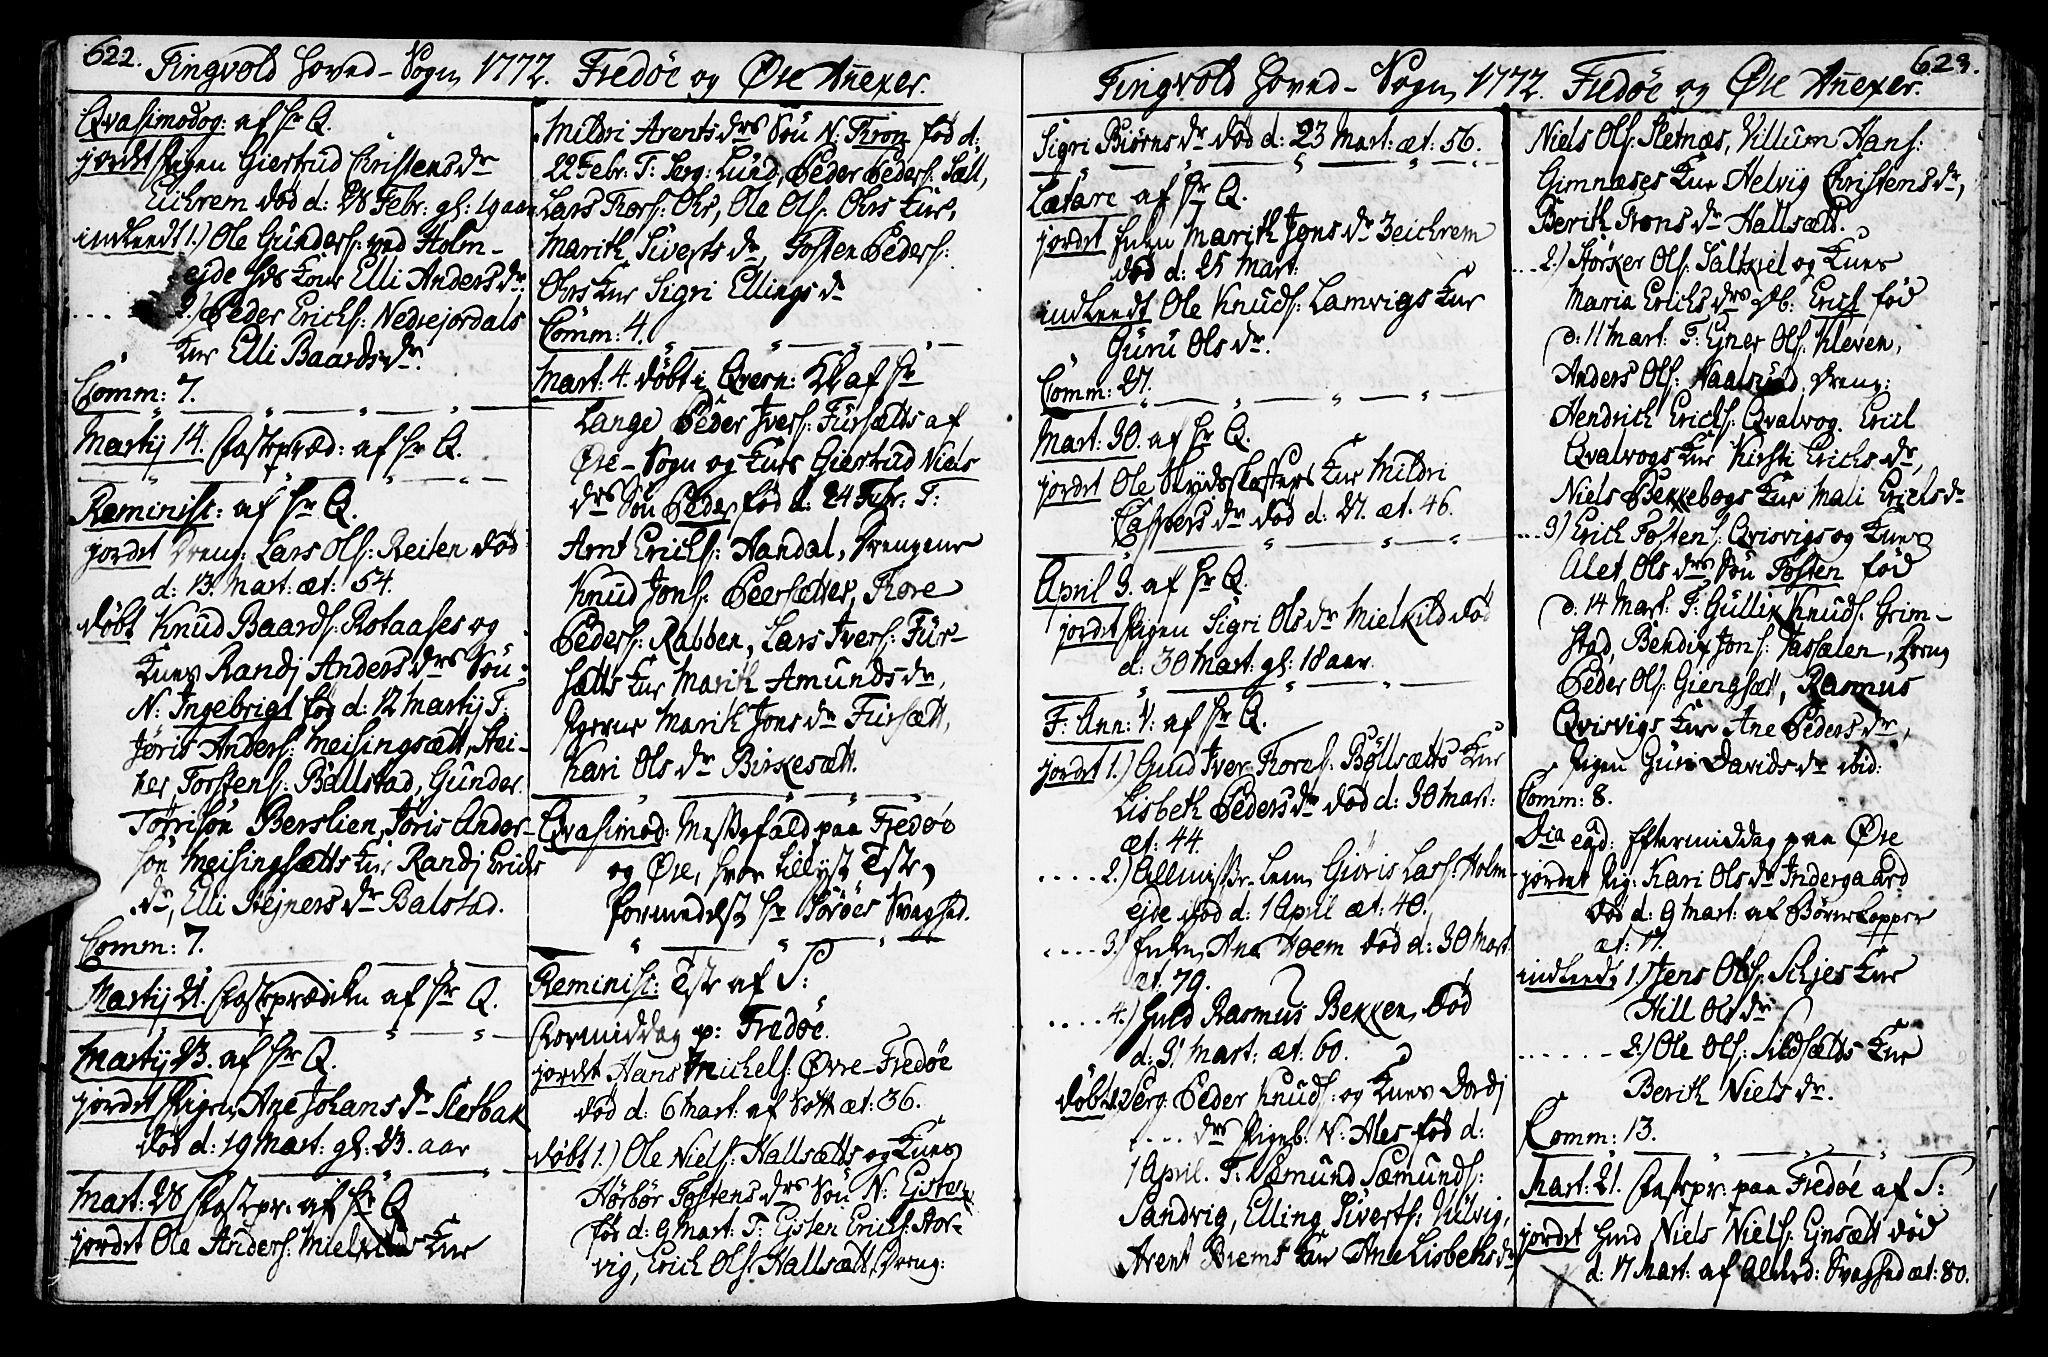 622. Tingvold Hoved-Sogn 1772. Fredöe og Øre Añexer.
Qvasimodog: af Hr Q.
jordet Pigen Giertrud Christens dr
Eichrem död d: 28 Febr: gl: 19 aar
indleedt 1.) Ole Gunders: ved Holm-
ejde hds Kone Elli Anders dr.
.... 2.) Peder Erichs: Nedrejordals
Kur Elli Baards dr.
Comm: 7.
Martij 14. Fastepræd: af Hr Q.
Reminisc: af Hr Q.
jordet Dreng: Lars Ols: Reiten död
d: 13. Mart: æt: 54.
döbt Knud Baards: Rotaases og
Kues Randj Anders drs Sön
N: Ingebrigt föd d: 12 Martij T:
Jöris Anders: Meisingsætt, Stei-
ner Torstens: Ballstad, Gunder
Torrisön Berslien, Jöris Ander-
sön Meisingsætts Kur Randj Erichs
dr, Elli Stejners dr Balstad.
Comm: 7.
Martij 21. Fasteprædiken af Hr Q.
Martij 23. af Hr Q.
jordet Pigen Ane Johans dr Sletbak
död d: 19 Mart: gl: 23. aar
Mart: 28 Fastepr: af Hr Q
jordet Ole Anders: Mielkilds Kur
Mildri Arents drs Sön N: Tron föd d:
22 Febr: T: Serg: Lund, Peder Peders: Sætt,
Lars Tors: Ohrs, Ole Ols: Ohrs Kur,
Marith Siverts dr, Tosten Peders:
Ohrs Kur Sigri Ellings dr
Comm: 4.
Mart: 4. döbt i Qvern: Kk af Hr
Lange Peder Ivers: Fursætts af
Øre-Sogn og Kues Giertrud Niels
drs Sön Peder föd d: 24 Febr: T:
Arnt Erichs: Handal, Drengene
Knud Jons: Peersætter, Tore
Peders: Rabben, Lars Ivers: Fur-
sætts Kur Marith Amunds dr,
Pigerne Marith Jons dr Fursætt,
Kari Ols dr Birkesætt.
Qvasimod: Messefald paa Fredöe
og Øre, hvor tillyst Teste
formedelst Hr Soröes Svaghed.
Reminisc: Teste af S:
Formiddag p: Fredöe.
jordet Hans Michels: Øvre-Fredöe
död d: 6 Mart: af Sott æt: 36.
döbt 1.) Ole Niels: Hallsætts og Kues
Hörbör Tostens drs Sön N: Eisten
föd d: 9 Mart: T: Eisten Erichs: Stor-
vig, Erich Ols: Hallsætt, Dreng:
Tingvold Hoved-Sogn 1772. Fredöe og Øre Añexer. 623.
Sigri Biörns dr död d: 23 Mart: æt: 56.
Lætare af Hr Q.
jordet Enken Marith Jons dr Beichrem
död d: 25 Mart:
indleedt Ole Knuds: Lamvigs Kur
Guru Ols dr.
Comm: 27.
Mart: 30. af Hr Q.
jordet Ole Skydskafters Kur Mildri
Caspers dr död d: 27. æt: 46.
April 3. af Hr Q.
jordet Pigen Sigri Ols dr Mielkild död
d: 30 Mart: gl: 18 aar.
F: Ann: V: af Hr Q.
jordet 1.) Gmd Iver Tores: Böllsætts Kur
Lisbeth Peders dr död d: 30 Mart:
æt: 44.
.... 2.) Allmisse-Lem Giöris Lars: Holm-
ejde död d: 1 April æt: 40.
.... 3.) Enken Ane Hoem död d: 30 Mart:
æt: 79.
.... 4.) Huld Rasmus Bekken död
d: 31 Mart: æt: 60.
döbt Serg: Peder Knuds: og Kues Dordj
.... drs Pigeb: N: Ales föd d:
1 April. T: Sæmund Sæmunds:
Sandvig, Elling Siverts: Ulvig,
Arent Biems Kur Ane Lisbeths dr
Niels Ols: Sletnæs, Villum Hans:
Gimnæses Kur Helvig Christens dr,
Berith Trons dr Hallsætt.
.... 2.) Störker Ols: Saltkiel og Kues
Maria Erichs drs Db: Erich föd
d: 11 Mart: T: Ejner Ols: Kleven,
Anders Ols: Naalsund, Dreng:
Hendrich Erichs: Qvalvog. Eriel
Qvalvogs Kur Kirsti Erichs dr,
Niels Bekkebogs Kur Mali Erichs dr
.... 3) Erich Tostens: Qvisvigs og Kues
Alet Ols drs Sön Tosten föd
d: 14 Mart: T: Gullix Knuds: Grim-
stad, Bendix Jons: Vassælen, Dreng
Peder Ols: Giengsætt, Rasmus
Qvisvigs Kur Ane Peders dr,
Pigen Guri Davids dr ibid:
Comm: 8.
Dia eod: Eftermiddag paa Øre
jordet Pig: Kari Ols dr Indergaard
död d: 9 Mart: af Börnekopper
æt: 17.
indleedt 1.) Jens Ols: Siljes Kur
Hill Ols dr
...... 2) Ole Ols: Sildsætts Kur
Berith Niels dr.
Comm: 13.
Mart: 21. Fastepr: paa Fredöe af S:
jordet Hmd Niels Niels: Ejnsætt död
d: 17 Mart: af Alderd: Svaghed æt: 80.